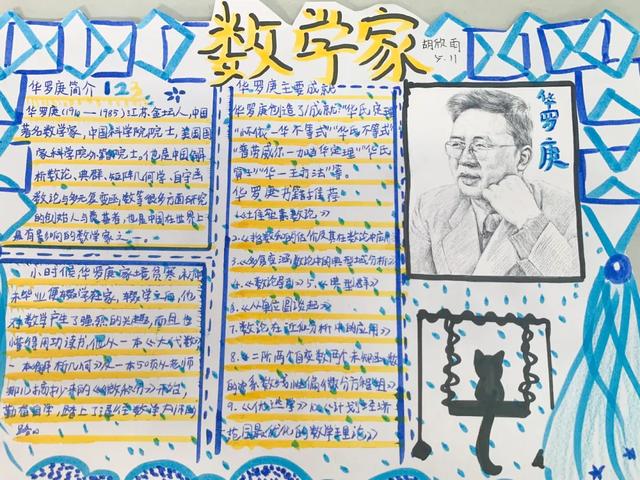 数学家
胡欣雨
5.11
华罗庚简介 123
华罗庚(1910—1985)江苏金坛人,中国
著名数学家,中国科学院院士,美国国
家科学院外籍院士,他是中国解
析数论、典群、矩阵几何学、自守函
数论与多元复变函数等很多方面研究
的创始人与奠基者,也是中国在世界上
具有影响的数学家之一
小时候华罗庚家境贫寒,初中
未毕业便辍学在家,辍学之后,他
对数学产生了强烈的兴趣,而且也
懂得用功读书,他从一本《大代数》
一本解析几何及一本50页从老师
那儿的《微积分》开始,
勤奋自学,踏上了通往数学大师的
路。
华罗庚主要成就
华罗庚创造了成就"华氏定理"
"怀依—华不等式""华氏不等式"
"普劳威尔—加当华定理""华氏
算子""华—王方法"等。
华罗庚书籍推荐
《堆垒素数论》
2.《指数和的估价及其在数论中应用》
3.《多复变函数论中的典型域分析》
4.《数论导引》5.《典型群》
6.《从单位圆谈起》
7.数论在近似分析中的应用》
8.《二阶两个自变数两个未知函数
的常系数线性偏微分方程组》
9.《优选学》10.《计划经济
范围最优化的数学理论》
华罗庚